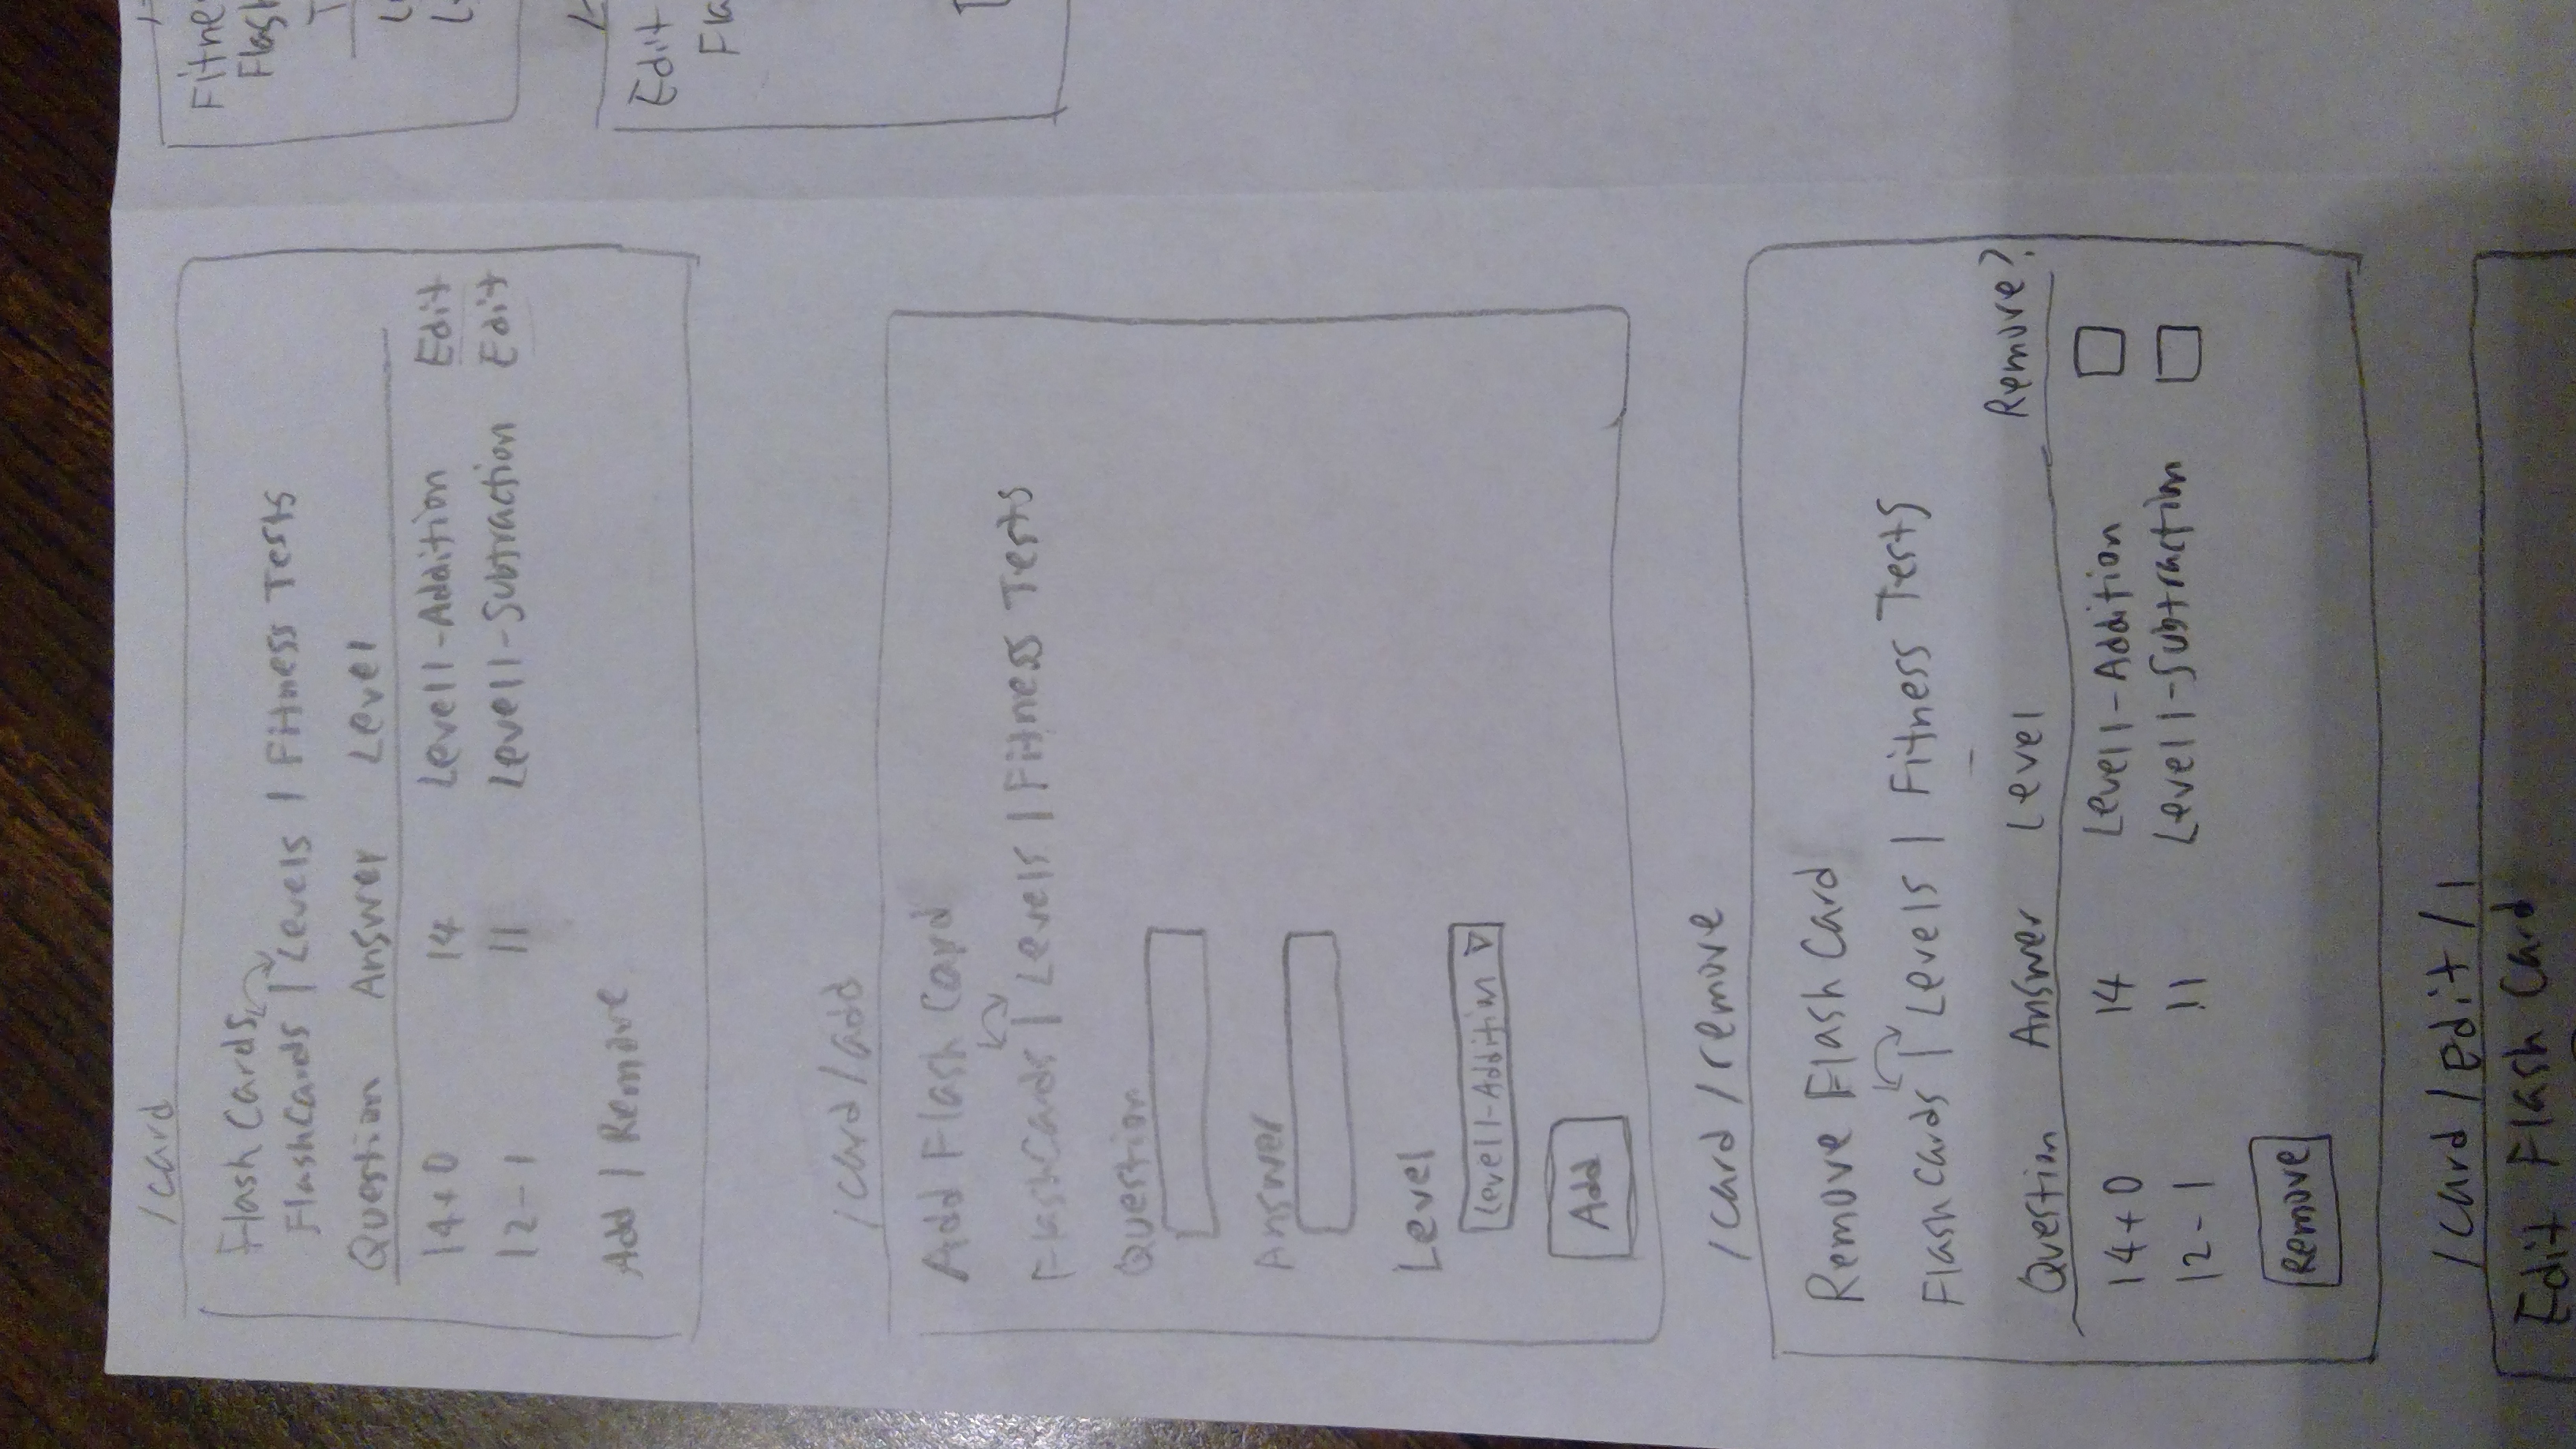 /card
Flash Cards
FlashCards | Levels | Fitness Tests
Question Answer Level
14+0 14 Level1-Addition Edit
12-1 11 Level1-Subtraction Edit
Add | Remove
/card/add
Add Flash Card
FlashCards | Levels | Fitness Tests
Question
Answer
Level
Level1-Addition
Add
/card/remove
Remove Flash Card
FlashCards | Levels | Fitness Tests
Question Answer Level Remove?
14+0 14 Level1-Addition
12-1 11 Level1-Subtraction
Remove
/card/edit/1
Edit Flash Card
Edit